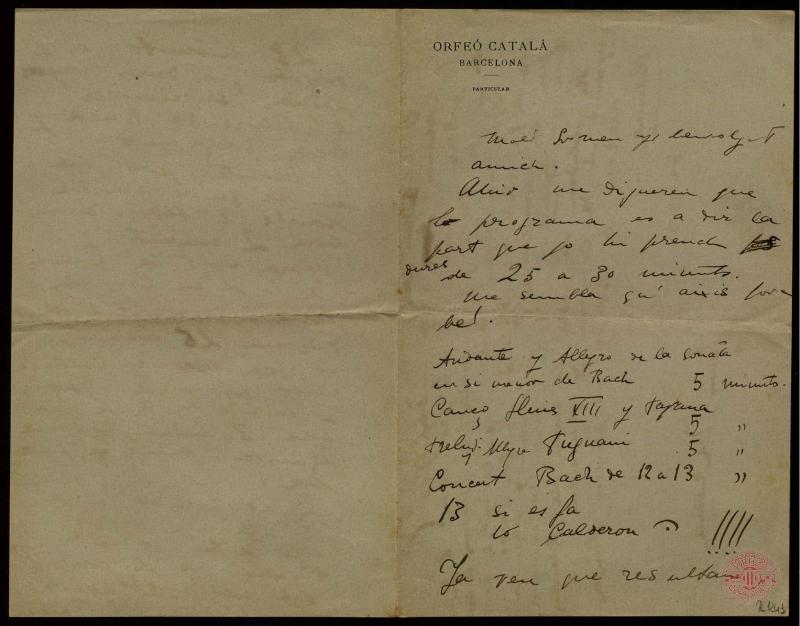 ORFEÓ CATALÁ
BARCELONA
PARTICULAR
Molt y benvolgut
amich.
Ahir me digueren que
lo programa es a dir la
part que jo hi prench
durés
de 25 a 30 minuts.
Me sembla qu' aixis fora
bé!.
Andante y Allegro de la Sonata
en si menor de Bach 5 minuts.
Cançó Lluis XIII y Pavana
5 "
Preludi y Allegro Pugnani 5 "
Concert Bach de 12 a 13 "
13 si es fa
lo Calderon 𝄐 !!!!!
Ja veu que resultan